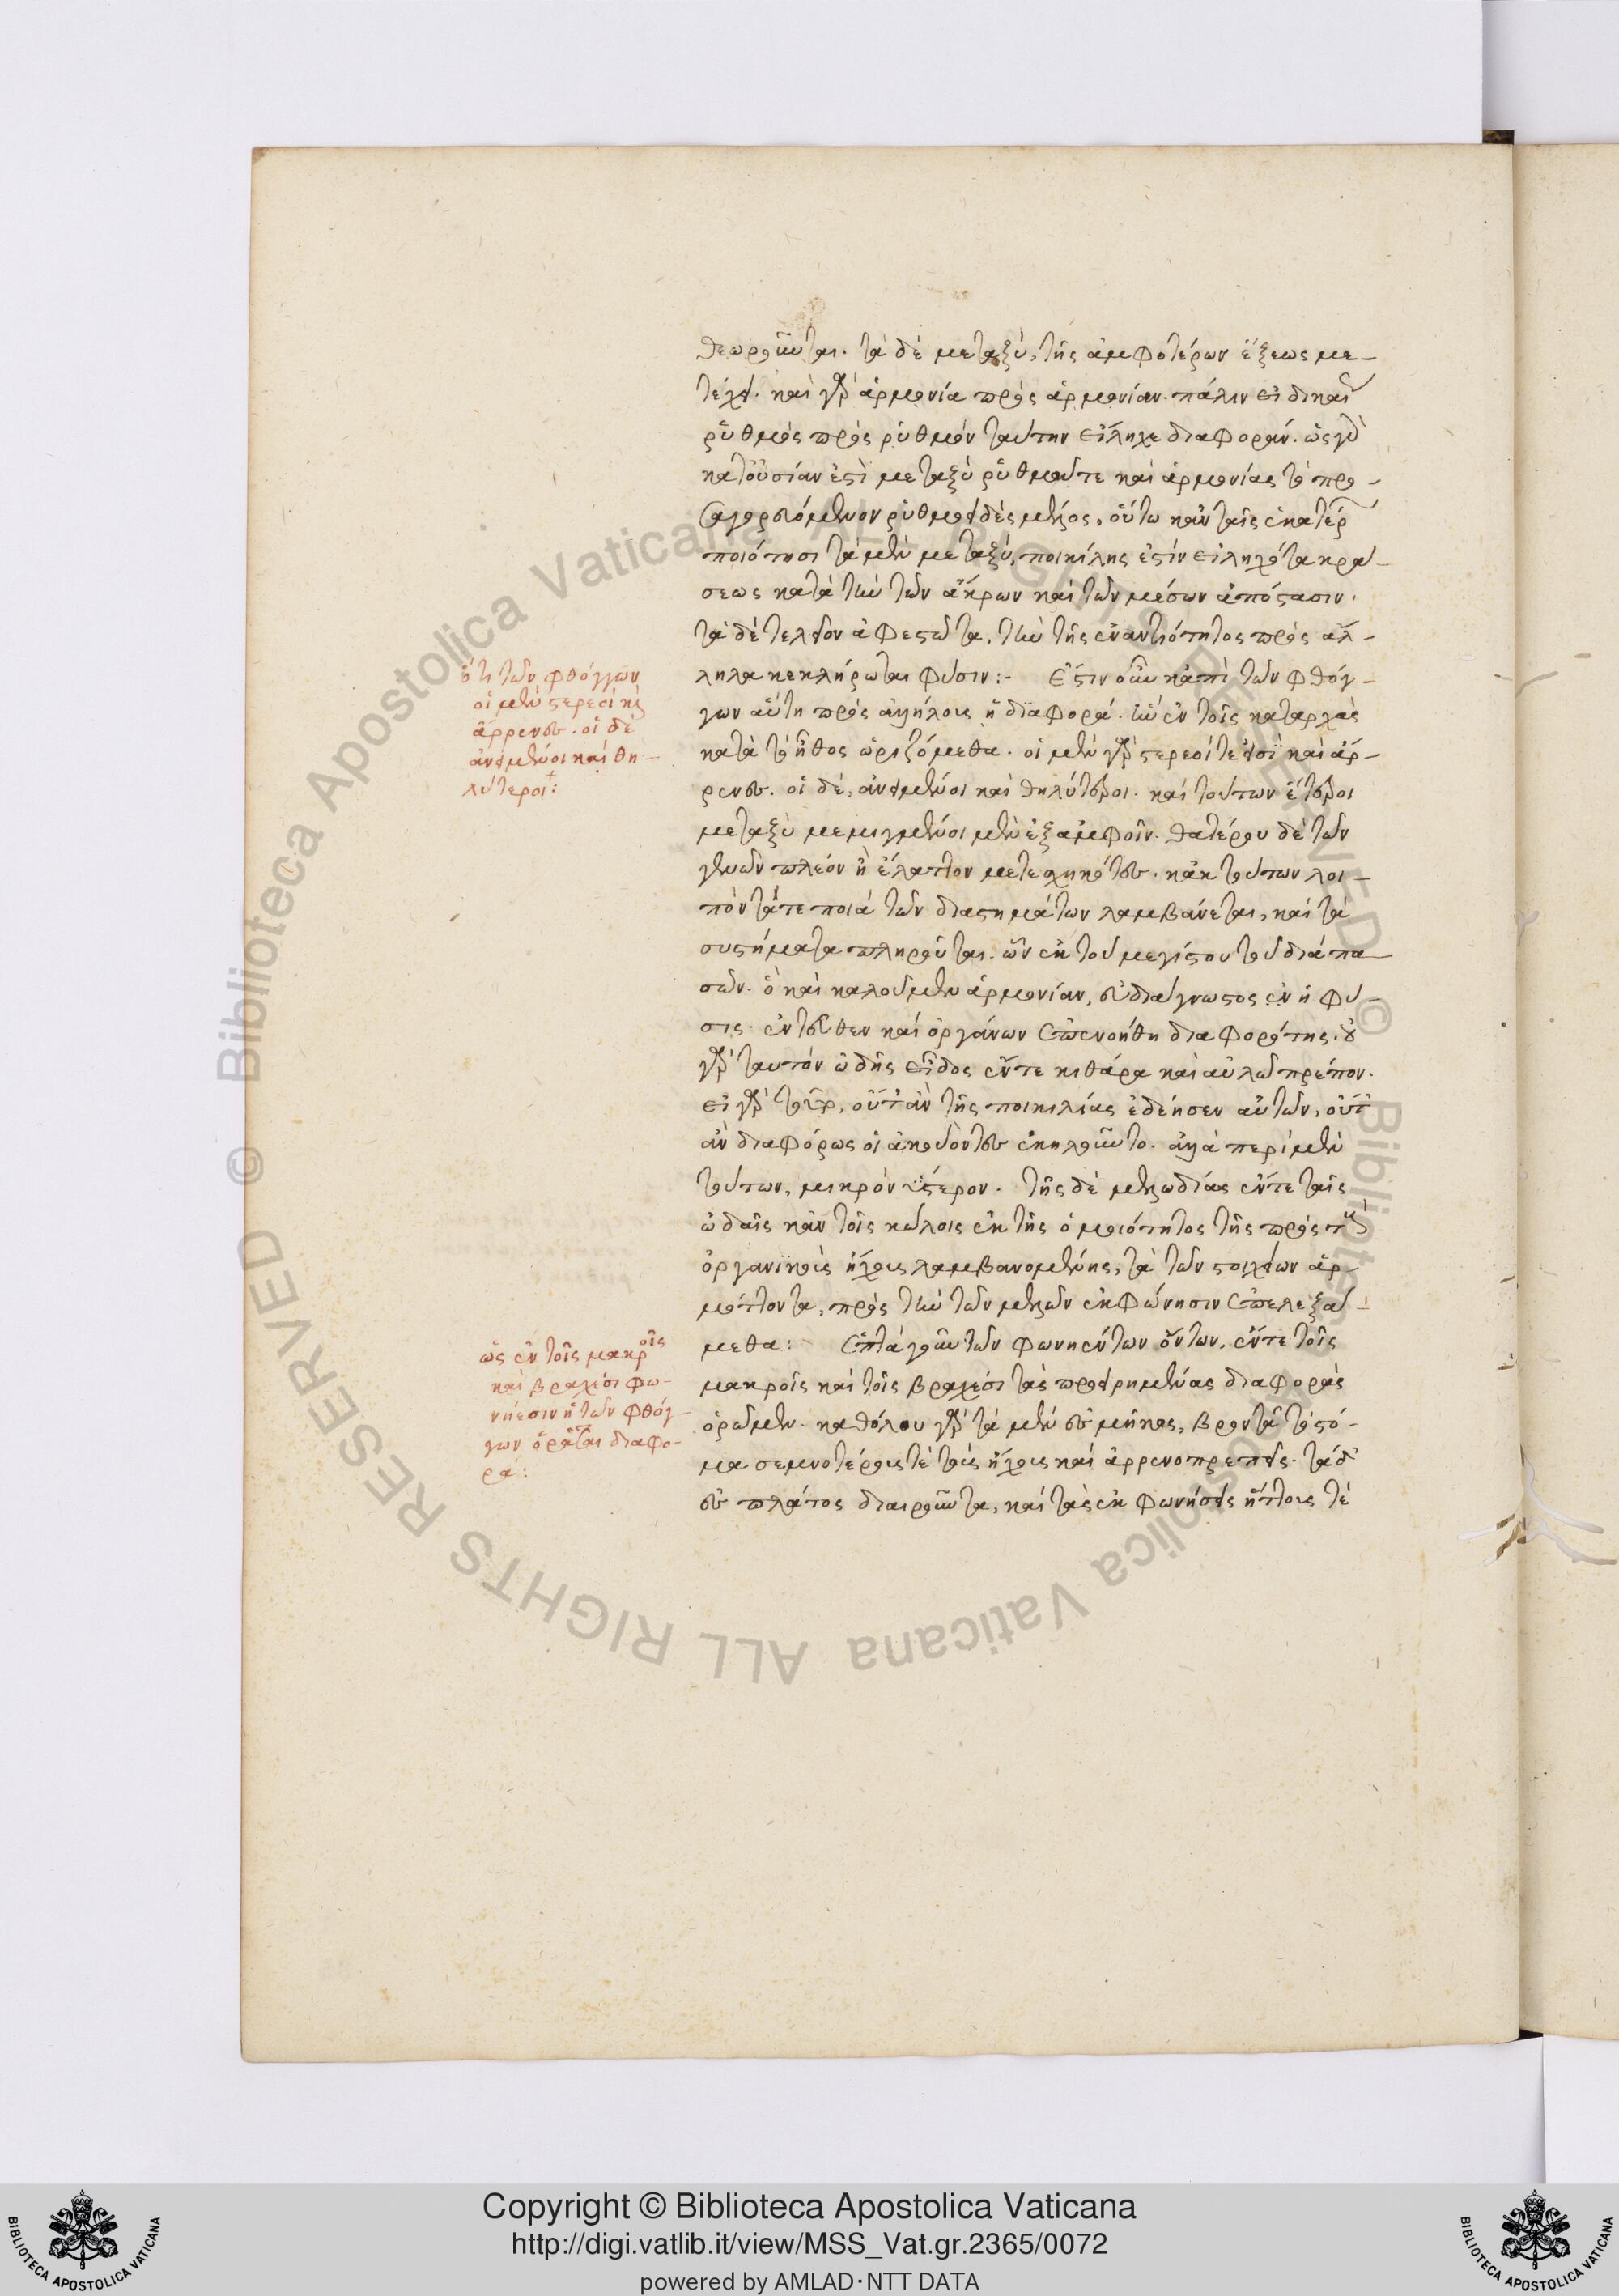 θεωροῦνται. τὰ δὲ μεταξύ, τῆς ἀμφοτέρων ἕξεως με-
τέχει. καὶ γὰρ ἁρμονία πρὸς ἁρμονίαν. πάλιν εἰ δὲ καὶ
ῥυθμὸς πρὸς ῥυθμὸν ταύτην εἴληχε διαφοράν. ὡς γὰρ
κατ' οὐσίαν ἐστὶ μεταξὺ ῥυθμοῦ τε καὶ ἁρμονίας τὸ προ-
σαγορευόμενον ῥυθμοειδὲς μέλος, οὕτω κἀν ταῖς ἑκατέρ
ποιότησι τὰ μὲν μεταξύ, ποικίλης ἐστὶν εἰληχότα κρά-
σεως κατὰ τὴν τῶν ἄκρων καὶ τῶν μέσων ἀπόστασιν.
τὰ δὲ τέλειον ἀφεστῶτα, τὴν τῆς ἐναντιότητος πρὸς ἄλ-
ληλα κεκλήρωται φύσιν:- Ἔστιν οὖν κἀπὶ τῶν φθόγ-
γων αὕτη πρὸς ἀλλήλους ἡ διαφορά. ἣν ἐν τοῖς καταρχὰς
κατὰ τὸ ἦθος ὡριζόμεθα. οἱ μὲν γὰρ στερεοί τε εἰσὶ καὶ ἄρ-
ρενες. οἱ δέ, ἀνειμένοι καὶ θηλύτεροι. καὶ τούτων ἕτεροι
μεταξὺ μεμιγμένοι μὲν ἐξ ἀμφοῖν. θατέρου δὲ τῶν
γενῶν πλέον ἢ ἔλαττον μετεσχηκότες. κἀκ τούτων λοι-
πὸν τά τε ποιὰ τῶν διαστημάτων λαμβάνεται, καὶ τὰ
συστήματα πληροῦται. ὧν ἐκ τοῦ μεγίστου τοῦ διὰ πα-
σῶν. ὃ καὶ καλοῦμεν ἁρμονίαν, εὐδιάγνωστος ἐν ἡ φύ-
σις. ἐντεῦθεν καὶ ὀργάνων ἐπενοήθη διαφορότης. οὐ
γὰρ ταυτὸν ᾠδῆς εἶδος ἔν τε κιθάρα καὶ αὐλῷ πρέπον.
εἰ γὰρ τοῦτο ἦν, οὔτ' ἂν τῆς ποικιλίας ἐδέησεν αὐτῶν, οὔτ'
ἂν διαφόρως οἱ ἀκούοντες ἐκηλοῦντο. ἀλλὰ περὶ μὲν
τούτων, μικρὸν ὕστερον. τῆς δὲ μελῳδίας ἔν τε ταῖς
ᾠδαῖς κἀν τοῖς κώλοις ἐκ τῆς ὁμοιότητος τῆς πρὸς τοὺς
ὀργανικοὺς ἤχους λαμβανομένης, τὰ τῶν στοιχείων ἁρ-
μόττοντα, πρὸς τὴν τῶν μελῶν ἐκφώνησιν ἐπελεξά-
μεθα: Ἑπτὰ γοῦν τῶν φωνηέντων ὄντων, ἔν τε τοῖς
μακροῖς καὶ τοῖς βραχέσι τὰς προειρημένας διαφορὰς
ὁρῶμεν. καθόλου γὰρ τὰ μὲν ἐς μῆκος, βροντᾷ τὸ στό-
μα σεμνοτέροις τε τοῖς ἤχοις καὶ ἀρρενοπρεπεῖς. τὰ δ'
ἐς πλάτος διαιροῦντα, καὶ τὰς ἐκφωνήσεις ἥττους τὲ
ὅτι τῶν φθόγγων
οἱ μὲν στερεοὶ καὶ
ἄρρενες. οἱ δὲ
ἀνειμένοι καὶ θη-
λύτεροι:
ὡς ἐν τοῖς μακροῖς
καὶ βραχέσι φω-
νήεσιν ἡ τῶν φθόγ-
γων ὁρᾶται διαφο-
ρά:
© Biblioteca Apostolica Vaticana ALL RIGHTS RESERVED © Biblioteca Apostolica Vaticana ALL RIGHTS RESERVED
Copyright © Biblioteca Apostolica Vaticana
http://digi.vatlib.it/view/MSS_Vat.gr.2365/0072
powered by AMLAD·NTT DATA
BIBLIOTECA APOSTOLICA VATICANA
BIBLIOTECA APOSTOLICA VATICANA